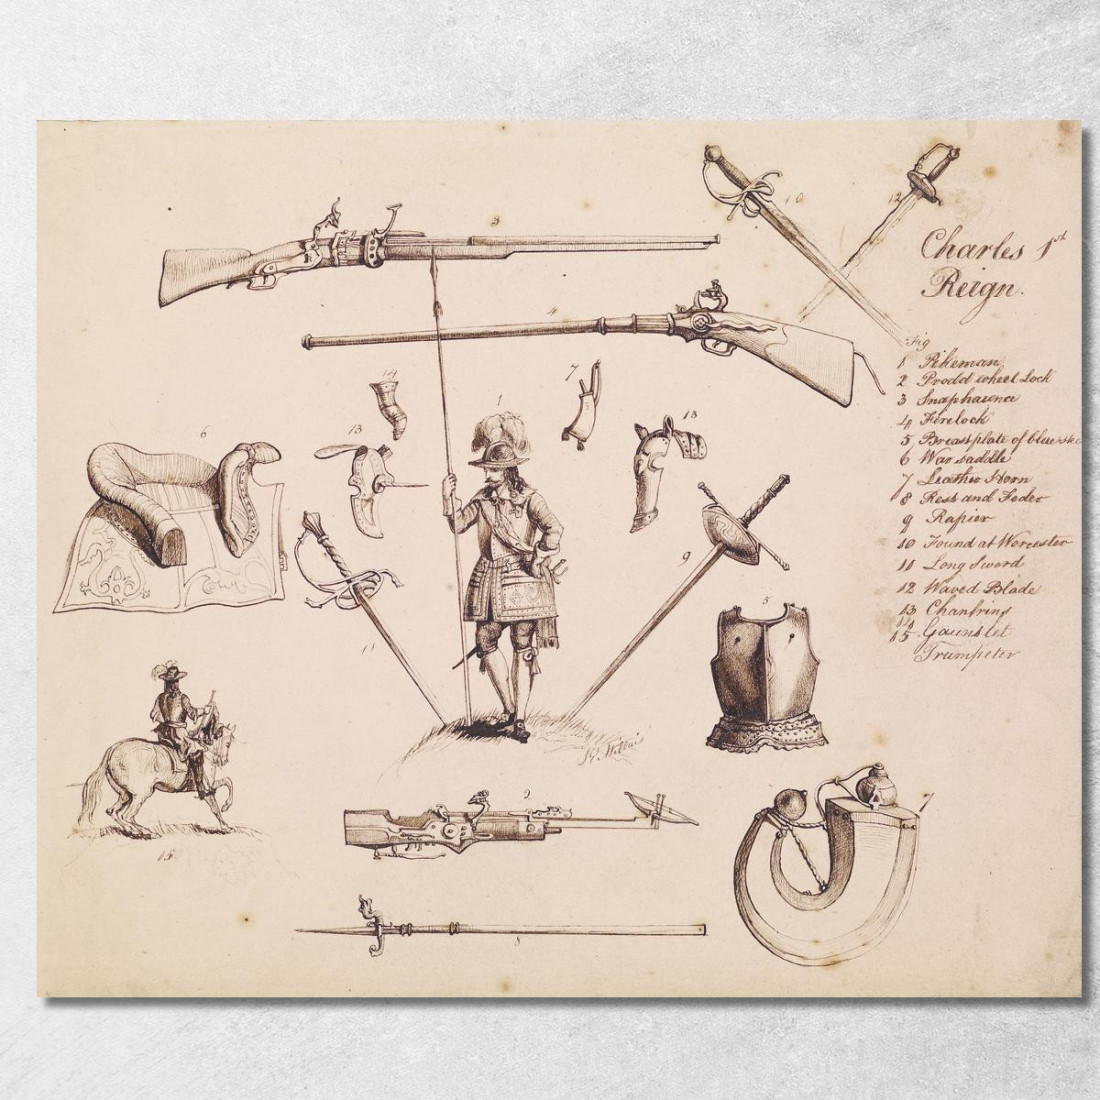 Charles 1st
Reign.
Fig
1 Pikeman
2 Prodd wheel Lock
3 Snaphaunce
4 Firelock
5 Breastplate of
6 War saddle
7 Leather Horn
8 Ress and Foder
9 Rapier
10 Found at Worcester
11 Long Sword
12 Waved Blade
13 Chanfrins
14 Gauntlet
15
Trumpeter
3
10
12
4
14
7
1
13
13
6
9
11
5
15
2
7
8